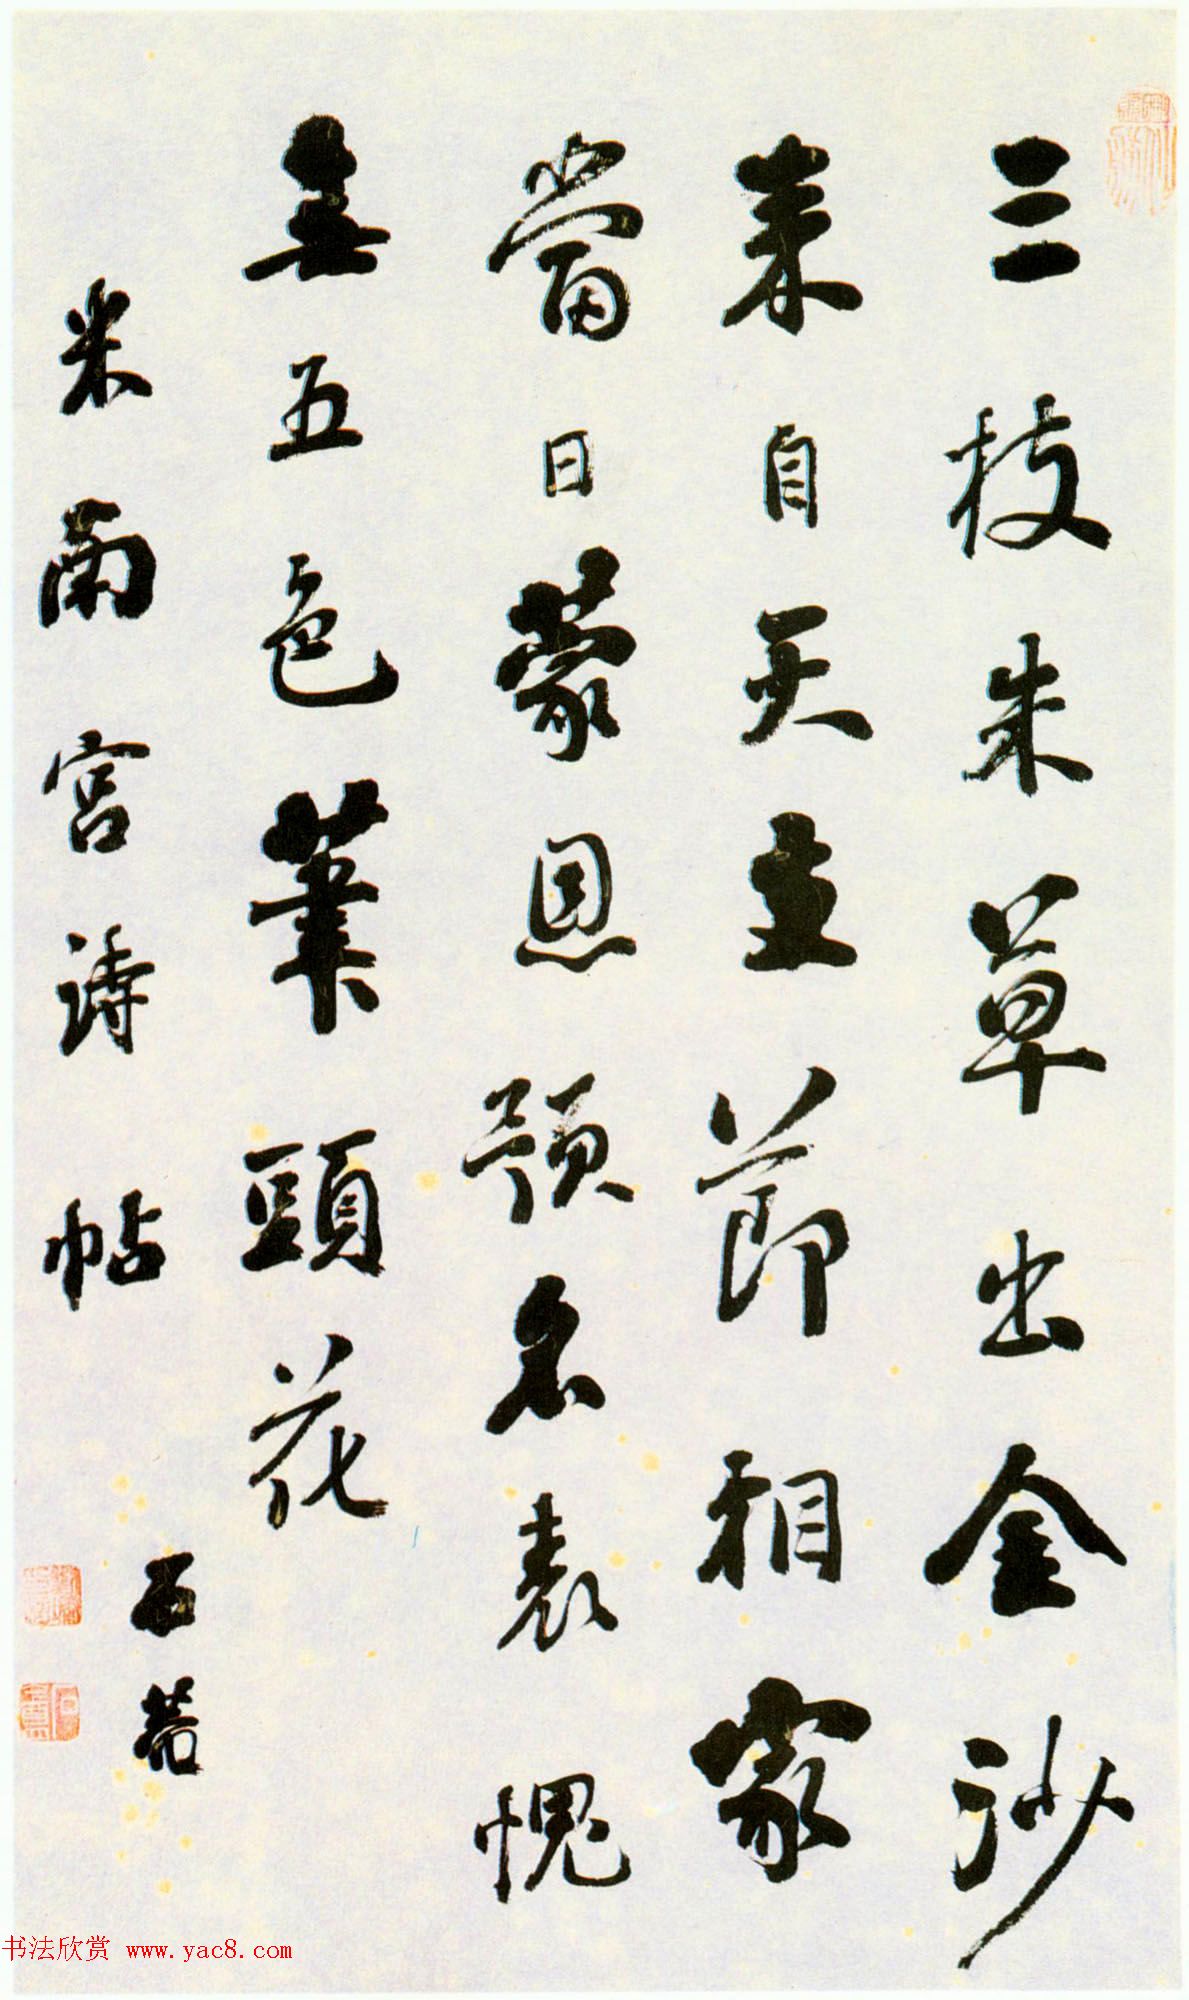 三枝朱草出金沙
来自天立節相家
當日蒙恩預名表愧
無五色筆頭花
米南宮詩帖
石菴
书法欣赏 www.yac8.com